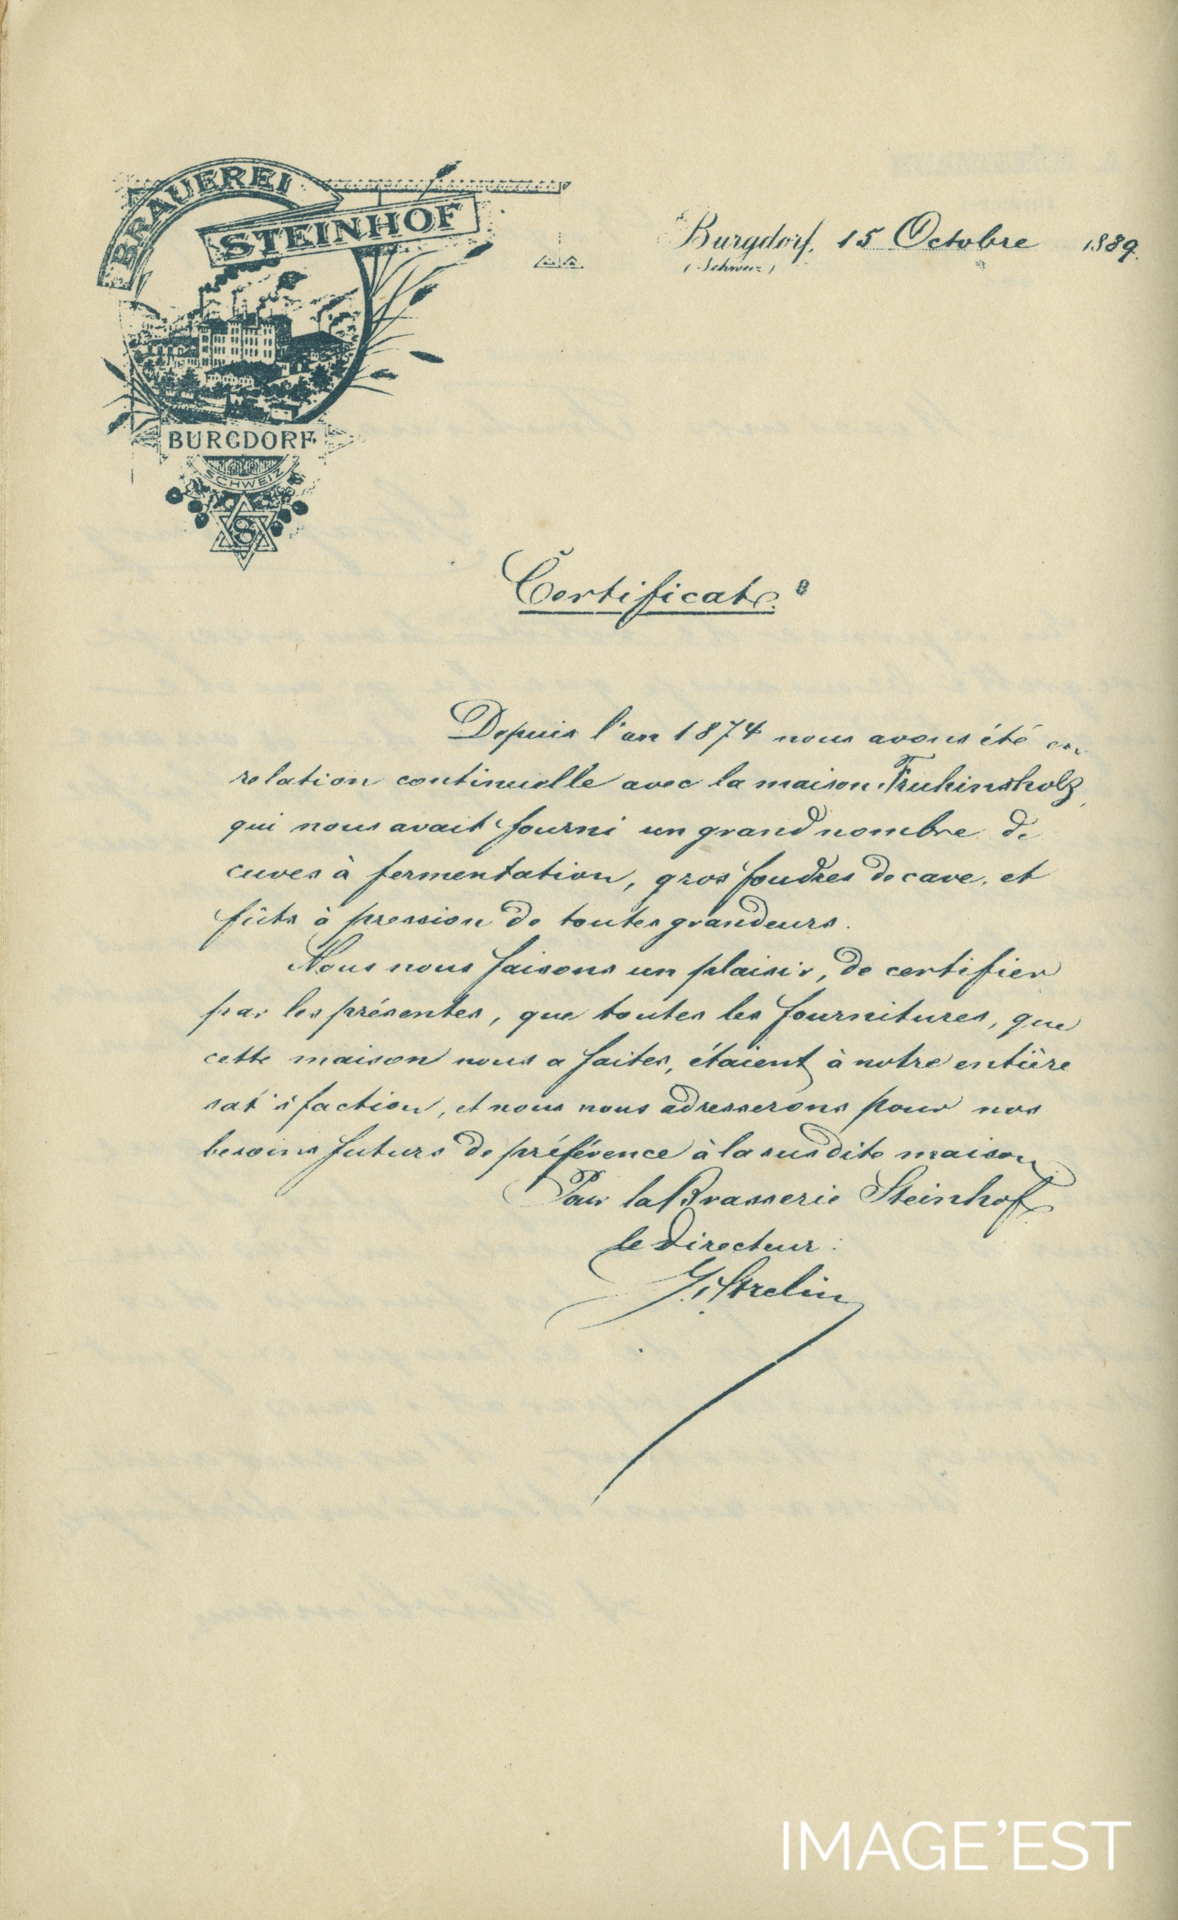 BRAUEREI
STEINHOF
BURGDORF
SCHWEIZ
S
Burgdorf, 15 Octobre 1889.
(Schweiz)
Certificat.
Depuis l'an 1874 nous avons été en
relation continuelle avec la maison Fruhinsholz,
qui nous avait fourni un grand nombre de
cuves à fermentation, gros foudres de cave, et
fûts à pression de toutes grandeurs.
Nous nous faisons un plaisir, de certifier
par les présentes, que toutes les fournitures, que
cette maison nous a faites, étaient à notre entière
satisfaction, et nous nous adresserons pour nos
besoins futurs de préférence à la susdite maison.
Pour la Brasserie Steinhof
le Directeur:
IMAGE'EST